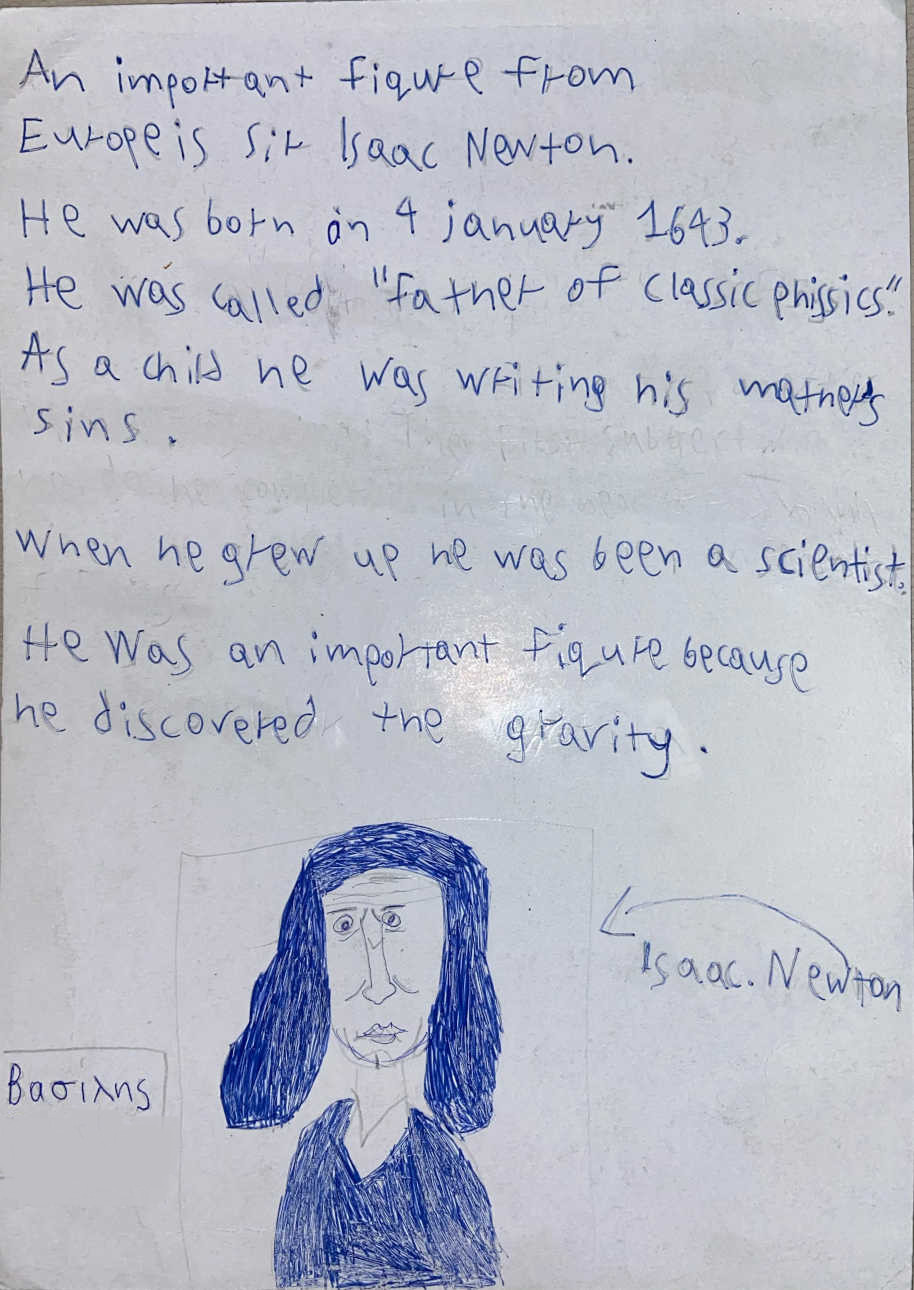 An important figure from
Europe is Sir Isaac Newton.
He was born on 4 january 1643.
He was called "father of classic phissics".
As a child he was writing his mother's
sins.
When he grew up he was been a scientist.
He was an important figure because
he discovered the gravity.
Isaac. Newton
Βασιλης